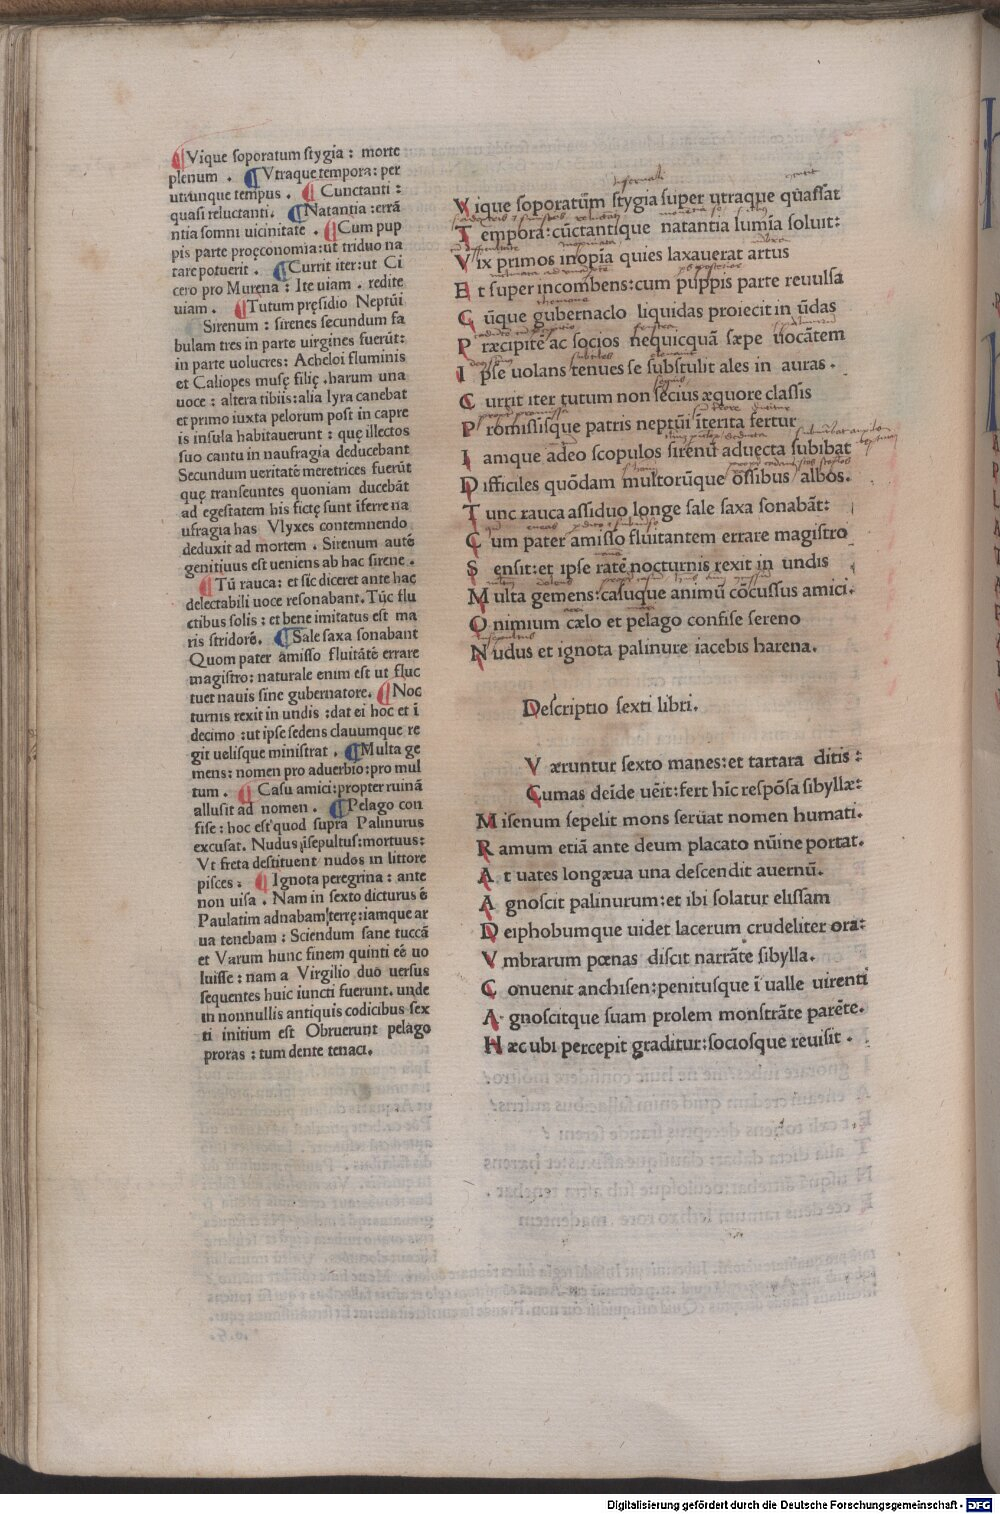 ¶Vique soporatum stygia : morte
plenum . ¶Vtraque tempora: per
utrunque tempus . ¶ Cunctanti :
quasi reluctanti. ¶Natantia :errā
ntia somni uicinitate . ¶Cum pup
pis parte proęconomia:ut triduo na
tare potuerit . ¶Currit iter:ut Ci
cero pro Murena : Ite uiam . redite
uiam . ¶Tutum pręsidio Neptūi
Sirenum : sirenes secundum fa
bulam tres in parte uirgines fuerūt:
in parte uolucres: Acheloi fluminis
et Caliopes musę filię .harum una
uoce : altera tibiis:alia lyra canebat
et primo iuxta pelorum post in capre
is insula habitauerunt : quę illectos
suo cantu in naufragia deducebant
Secundum ueritatē meretrices fuerūt
quę transeuntes quoniam ducebāt
ad egestatem his fictę sunt īferre na
ufragia has Vlyxes contemnendo
deduxit ad mortem . Sirenum autē
genitiuus est ueniens ab hac sirene .
¶Tū rauca: et sic diceret ante hac
delectabili uoce resonabant.Tūc flu
ctibus solis : et bene imitatus est ma
ris stridorē. ¶Sale saxa sonabant
Quom pater amisso fluitātē errare
magistro: naturale enim est ut fluc
tuet nauis sine gubernatore. ¶Noc
turnis rexit in undis :dat ei hoc et ī
decimo :ut ipse sedens clauumque re
git uelisque ministrat . ¶Multa ge
mens: nomen pro aduerbio:pro mul
tum . ¶ Casu amici:propter ruinā
allusit ad nomen . ¶Pelago con
fise : hoc est quod supra Palinurus
excusat. Nudus īsepultus:mortuus:
Vt freta destituent nudos in littore
pisces . ¶ Ignota peregrina : ante
non uisa . Nam in sexto dicturus ē
Paulatim adnabam terrę:iamque ar
ua tenebam : Sciendum sane tuccā
et Varum hunc finem quinti eē uo
luisse : nam a Virgilio duo uersus
sequentes huic iuncti fuerunt. unde
in nonnullis antiquis codicibus sex
ti initium est Obruerunt pelago
proras : tum dente tenaci.
V ique soporatūm stygia super utraque quassat
T empora: cūctantique natantia lumīa soluit:
V ix primos inopīa quies laxauerat artus
E t super incombens: cum puppis parte reuulsa
C ūque gubernaclo liquidas proiecit in ūdas
P ræcipitē ac socios nequicquā sæpe uocātem
I pse uolans tenues se substulit ales in auras .
C urrit iter tutum non secius æquore classis
P romissisque patris neptūi īterita fertur
I amque adeo scopulos sirenū aduecta subibat
D ifficiles quōdam multorūque ossibus albos.
T unc rauca assiduo longe sale saxa sonabāt:
C um pater amisso fluitantem errare magistro
S ensit:et ipse ratē nocturnis rexit in undis
M ulta gemens:casuque animū cōcussus amici.
O nimium cælo et pelago confise sereno
N udus et ignota palinure iacebis harena.
Descriptio sexti libri.
V æruntur sexto manes:et tartara ditis :
Cumas deīde uēit:fert hīc respōsa sibyllæ:
M isenum sepelit mons seruat nomen humati.
R amum etiā ante deum placato nūine portat.
A t uates longæua una descendit auernū.
A gnoscit palinurum:et ibi solatur elissam
D eiphobumque uidet lacerum crudeliter ora:
V mbrarum pœnas discit narrāte sibylla.
C onuenit anchisen:penitusque ī ualle uirenti
A gnoscitque suam prolem monstrāte parēte.
H æc ubi percepit graditur:sociosque reuisit .
Digitalisierung gefördert durch die Deutsche Forschungsgemeinschaft - DFG